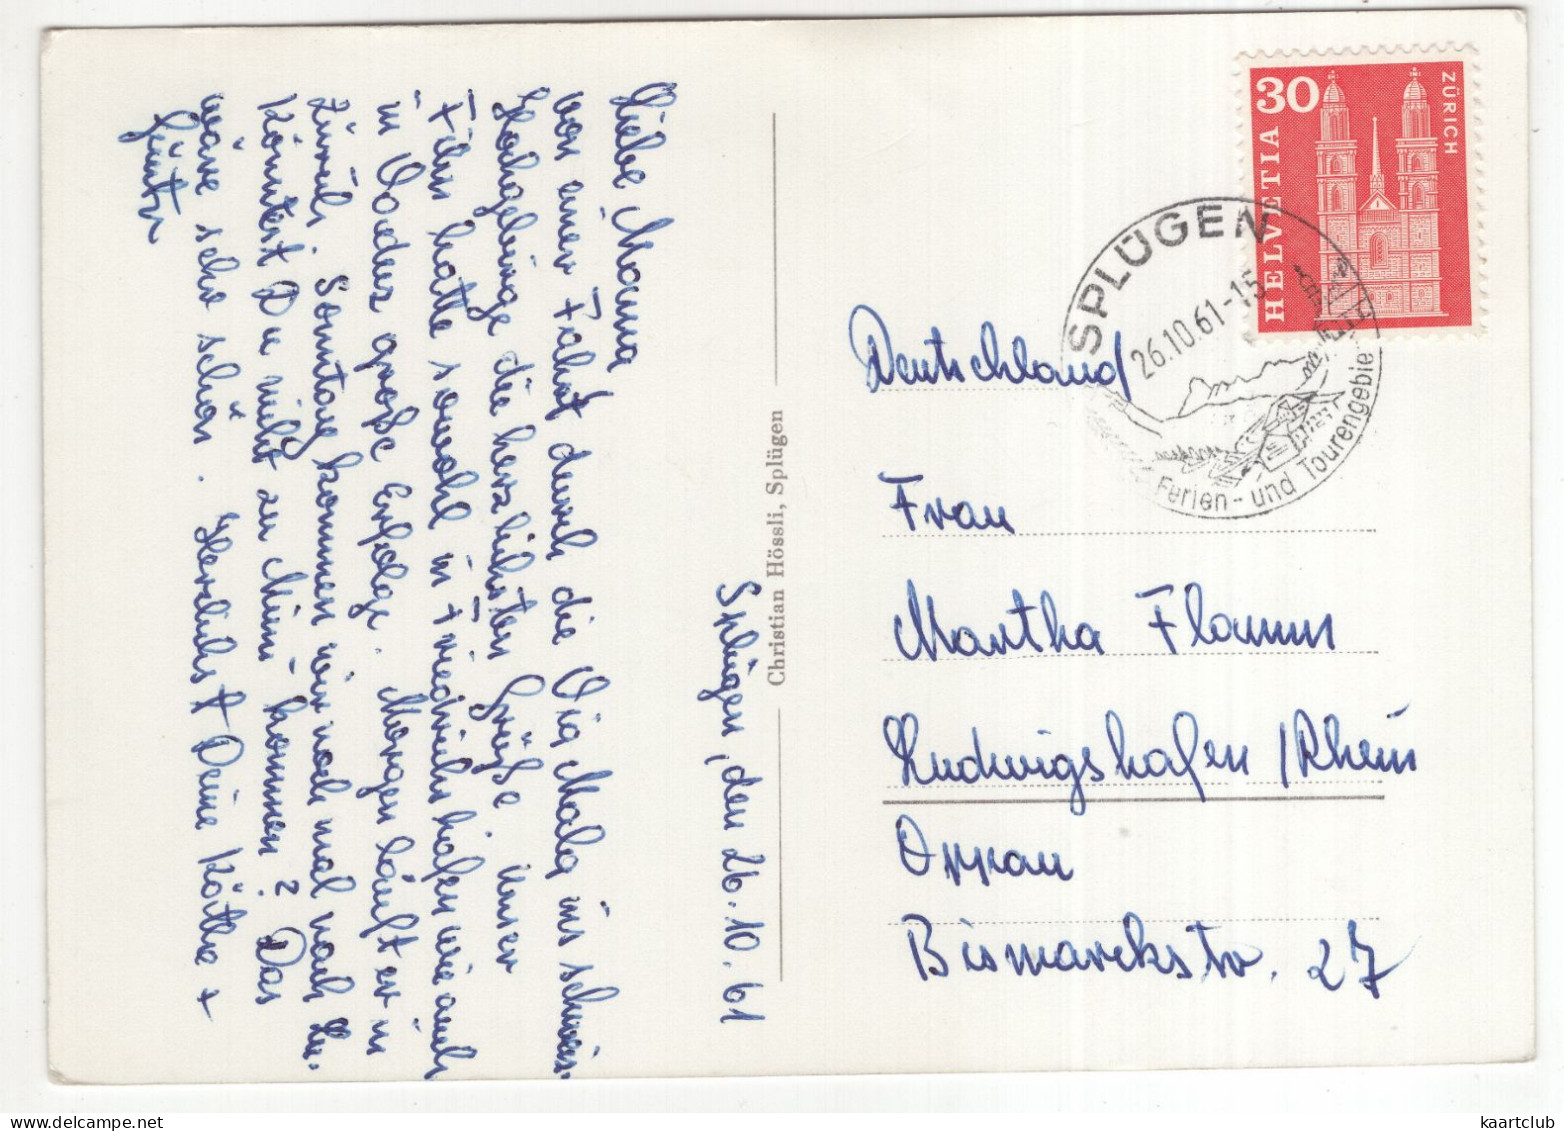 Splügen, den 26.10.61
Liebe Mama
von einer Fahrt durch die Via Mala ins schweiz.
Hochgebirge die herzlichsten Grüße. Unser
Film hatte sowohl in Friedrichshafen wie auch
in Vaduz große Erfolge. Morgen läuft er in
Zürich. Sonntag kommen wir noch mal nach Lu.
Könntest Du nicht zu Mimi kommen? Das
wäre sehr schön. Herzlichst Deine Käthe +
Günter
Christian Hössli, Splügen
30
HELVETIA
ZÜRICH
SPLÜGEN
26.10.61-15
Ferien- und Tourengebiet
Deutschland
Frau
Martha Flamm
Ludwigshafen/Rhein
Oppau
Bismarckstr. 27
kaartclub